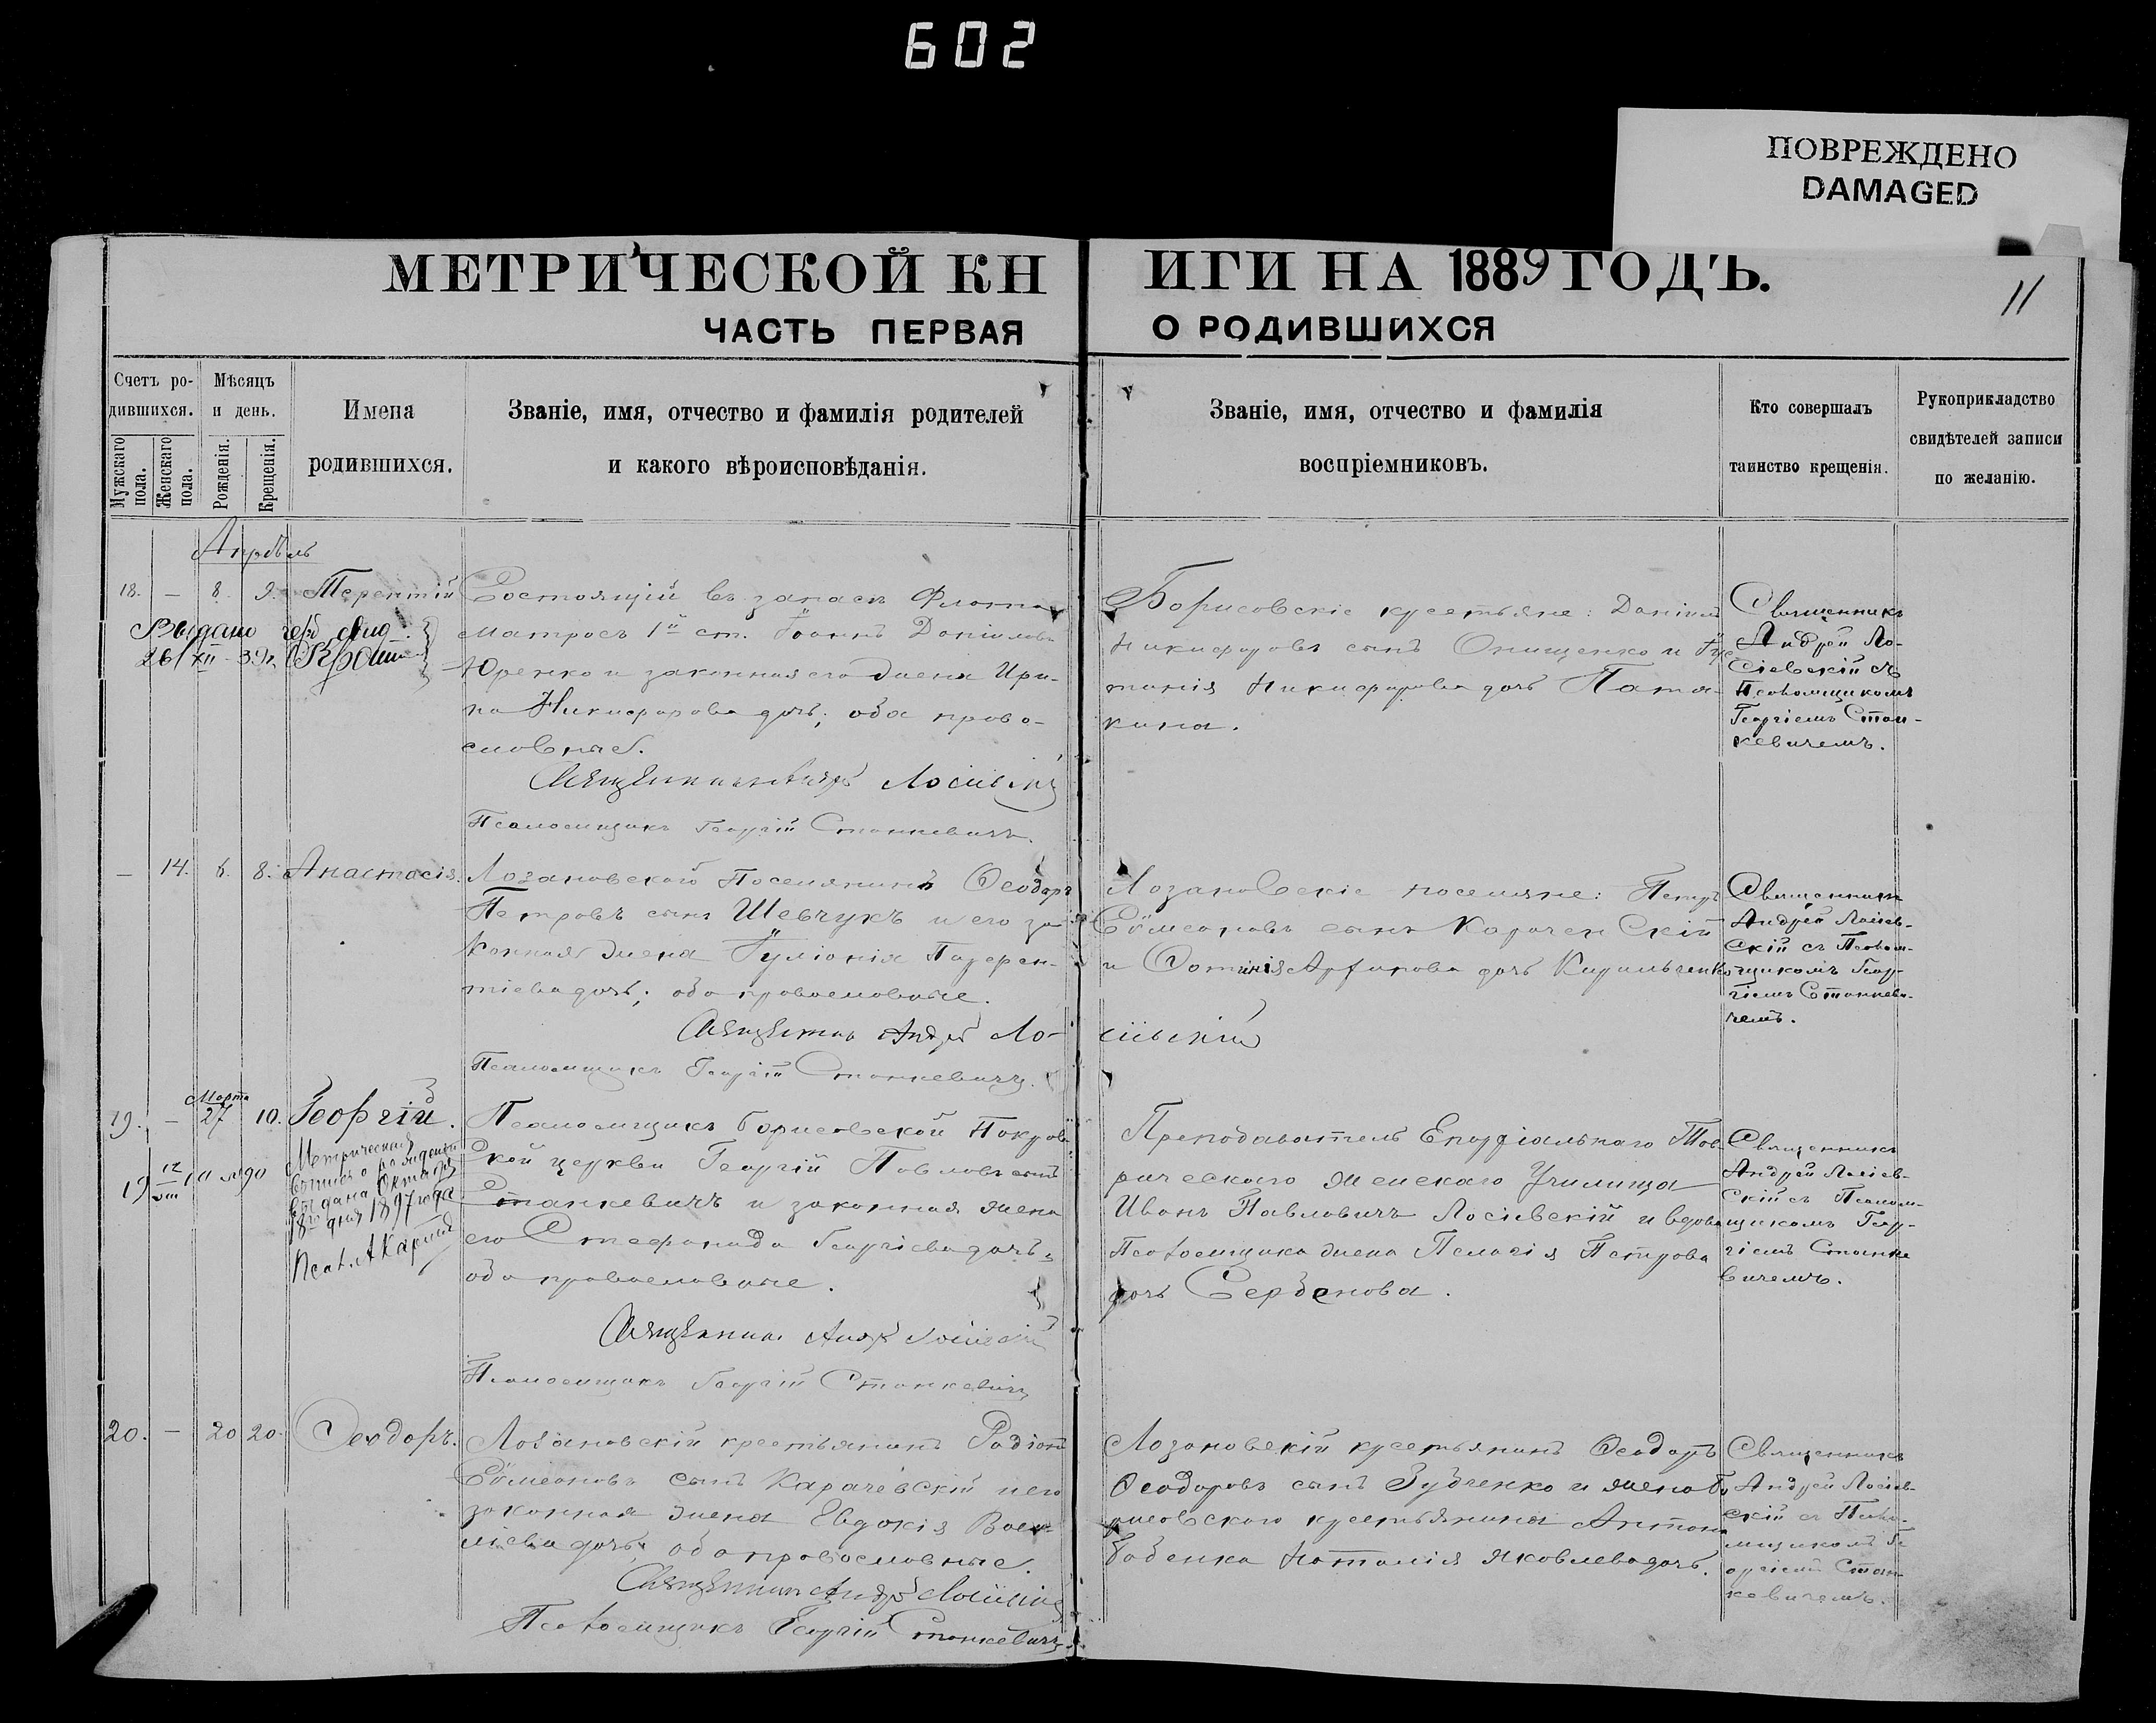 602
ПОВРЕЖДЕНО
DAMAGED
МЕТРИЧЕСКОЙ КНИГИ НА 1889 ГОДЪ.
11
ЧАСТЬ ПЕРВАЯ О РОДИВШИХСЯ
Счетъ ро-
дившихся.
Мужскаго пола.
Женскаго пола.
Мѣсяцъ
и день.
Рожденія.
Крещенія.
Имена
родившихся.
Званіе, имя, отчество и фамилія родителей
и какого вѣроисповѣданія.
Званіе, имя, отчество и фамилія
воспріемниковъ.
Кто совершалъ
таинство крещенія.
Рукоприкладство
свидѣтелей записи
по желанію.
Апрѣль
18. — 8. 9. Терентій
Выдано
26/XII-39г.
Состоящій въ запасѣ Флота
матросъ 1й ст. Іоаннъ Даніиловъ
Юренко и законная его жена Ири-
на Никифорова дочь; оба право-
славные.
Священникъ Андрей Лосіевскій
Псаломщикъ Георгій Станкевичъ.
Борисовскіе крестьяне: Даніилъ
Никифоровъ сынъ Онищенко и
Никифорова дочь
кина.
Священникъ
Андрей Ло-
сіевскій съ
Псаломщикомъ
Георгіемъ Стан-
кевичемъ.
— 14. 8. 8. Анастасія.
Лозановскій Поселянинъ Ѳеодоръ
Петровъ сынъ Шевчукъ и его за-
конная жена Іуліонія
тіева дочь; оба православные.
Священникъ Андрей Ло-
сіевскій
Псаломщикъ Георгій Станкевичъ.
Лозановскіе поселяне: Петръ
Сѵмеоновъ сынъ
и дочь
Священникъ
Андрей Лосіев-
скій съ Псалом-
щикомъ Геор-
гіемъ Станкеви-
чемъ.
Марта
19. — 27 10. Георгій.
Метрическая
выпись о рожденіи
выдана Октября
18го дня 1897 года
Псаломщикъ Борисовской Покров-
кой церкви Георгій Павловъ сынъ
Станкевичъ и законная жена
его Стефанида Георгіева дочь;
оба православные.
Священникъ Андрей Лосіевскій
Псаломщикъ Георгій Станкевичъ
Преподаватель Епархіальнаго Тав-
рическаго женскаго Училища
Иванъ Павловичъ Лосіевскій и вдова
Псаломщика жена Пелагія Петрова
дочь Сербенова.
Священникъ
Андрей Лосіев-
скій съ Псалом-
щикомъ Геор-
гіемъ Станке
вичемъ.
20. — 20 20. Ѳеодоръ.
Лозановскій крестьянинъ Родіонъ
Сѵмеоновъ сынъ Карачевскій и его
законная жена Евдокія Васи-
ліева дочь; оба православные.
Священникъ Андрей Лосіевскій
Псаломщикъ Георгій Станкевичъ
Лозановскій крестьянинъ Ѳеодоръ
Ѳеодоровъ сынъ Зубченко и жена Бо-
рисовскаго крестьянина Антона
Бабенка Наталія Яковлева дочь.
Священникъ
Андрей Лосіев-
скій съ Псало-
мщикомъ Ге
оргіемъ Стан-
кевичемъ.